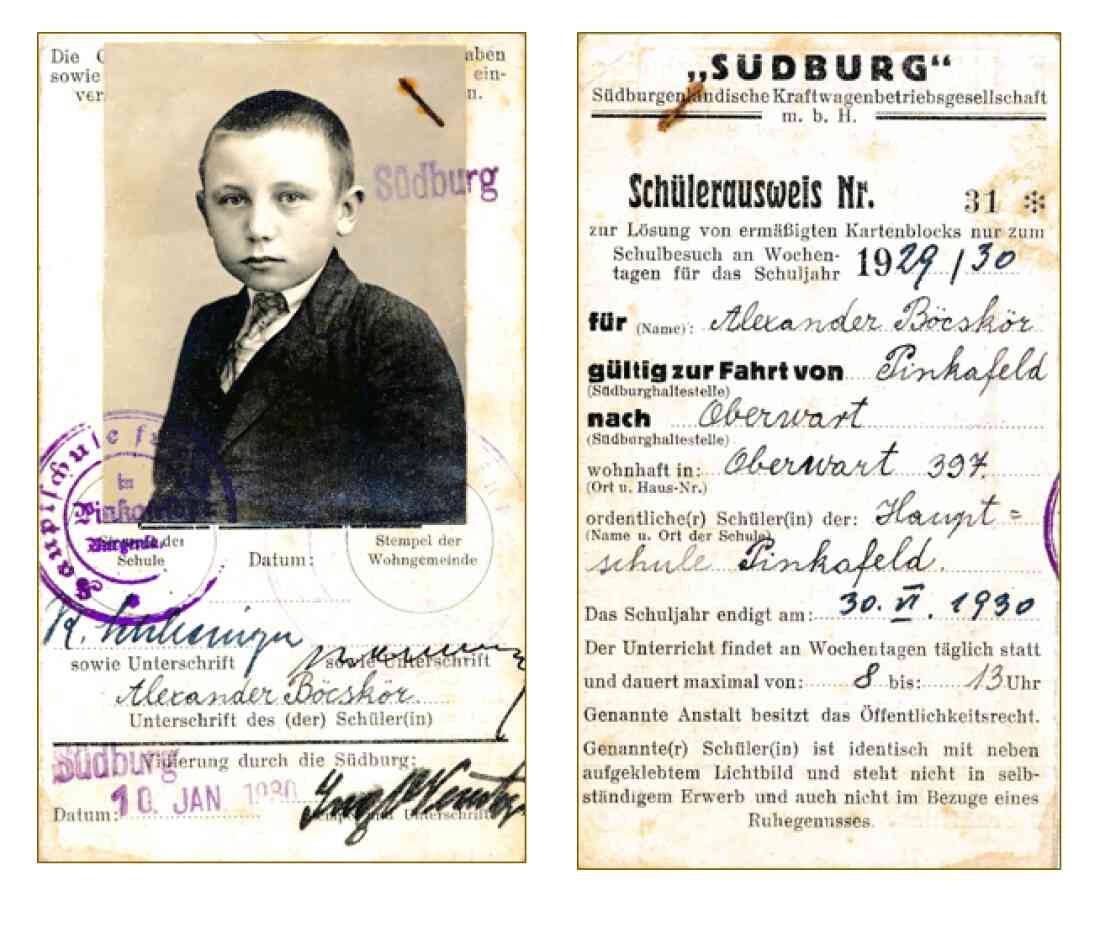 Die
aben
sowie
ein-
ver
n.
Südburg
Hauptschule
in
Pinkafeld
Schule
Datum:
Stempel der
Wohngemeinde
sowie Unterschrift
sowie Unterschrift
Alexander Böcskör.
Unterschrift des (der) Schüler(in)
Südburg
Vidierung durch die Südburg:
Datum: 10. JAN. 1930
Unterschrift
„SÜDBURG“
Südburgenländische Kraftwagenbetriebsgesellschaft
m. b. H.
Schülerausweis Nr. 31 *
zur Lösung von ermäßigten Kartenblocks nur zum
Schulbesuch an Wochen-
tagen für das Schuljahr 1929/30
für (Name): Alexander Böcskör
gültig zur Fahrt von Pinkafeld
(Südburghaltestelle)
nach Oberwart
(Südburghaltestelle)
wohnhaft in: Oberwart 397.
(Ort u. Haus-Nr.)
ordentliche(r) Schüler(in) der: Haupt=
(Name u. Ort der Schule)
schule Pinkafeld.
Das Schuljahr endigt am: 30. VI. 1930
Der Unterricht findet an Wochentagen täglich statt
und dauert maximal von: 8 bis: 13 Uhr
Genannte Anstalt besitzt das Öffentlichkeitsrecht.
Genannte(r) Schüler(in) ist identisch mit neben
aufgeklebtem Lichtbild und steht nicht in selb-
ständigem Erwerb und auch nicht im Bezuge eines
Ruhegenusses.